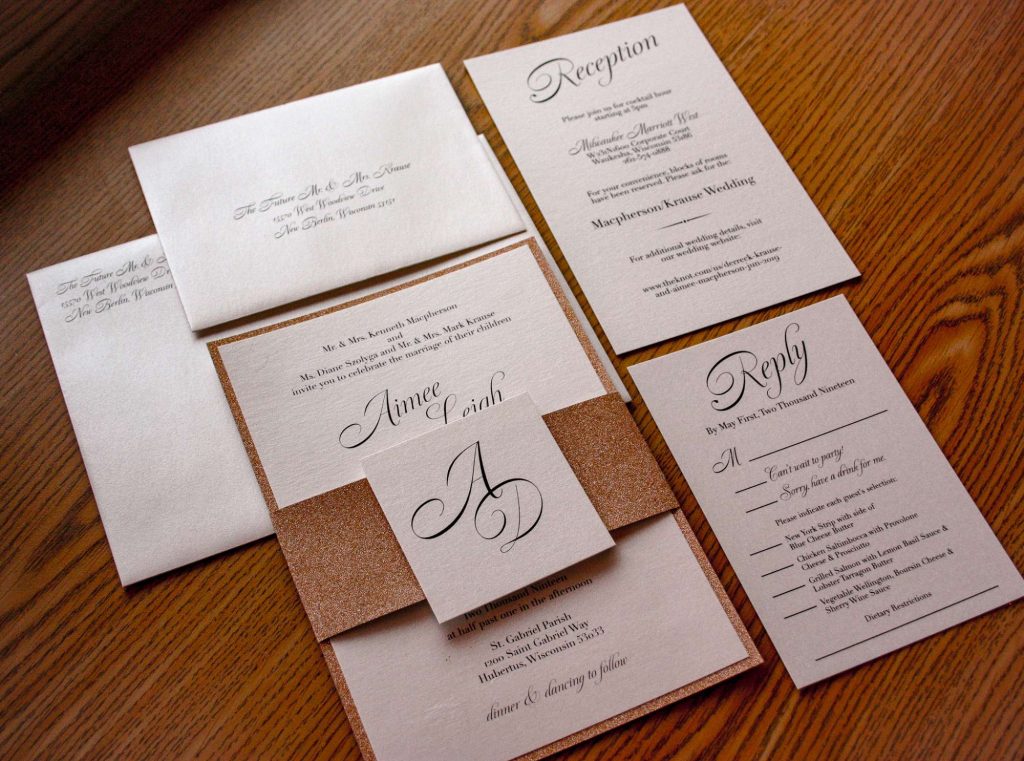 The Future Mr. & Mrs. Krause
13570 West Woodview Drive
New Berlin, Wisconsin 53151
The Future Mr. &
13570 West Woodview D
New Berlin, Wisconsin
Mr. & Mrs. Kenneth Macpherson
and
Ms. Diane Szolyga and Mr. & Mrs. Mark Krause
invite you to celebrate the marriage of their children
Aimee
Leigh
A
D
Two Thousand Ninteen
at half past one in the afternoon
St. Gabriel Parish
1200 Saint Gabriel Way
Hubertus, Wisconsin 53033
dinner & dancing to follow
Reception
Please join us for cocktail hour
starting at 5pm
Milwaukee Marriott West
W231N1600 Corporate Court
Waukesha, Wisconsin 53186
262-574-0888
For your convenience, blocks of rooms
have been reserved. Please ask for the:
Macpherson/Krause Wedding
For additional wedding details, visit
our wedding website:
www.theknot.com/us/derreck-krause-
and-aimee-macpherson-jun-2019
Reply
By May First, Two Thousand Nineteen
M
Can't wait to party!
Sorry, have a drink for me.
Please indicate each guest's selection:
New York Strip with side of
Blue Cheese Butter
Chicken Saltimbocca with Provolone
Cheese & Prosciutto
Grilled Salmon with Lemon Basil Sauce &
Lobster Tarragon Butter
Vegetable Wellington, Boursin Cheese &
Sherry Wine Sauce
Dietary Restrictions